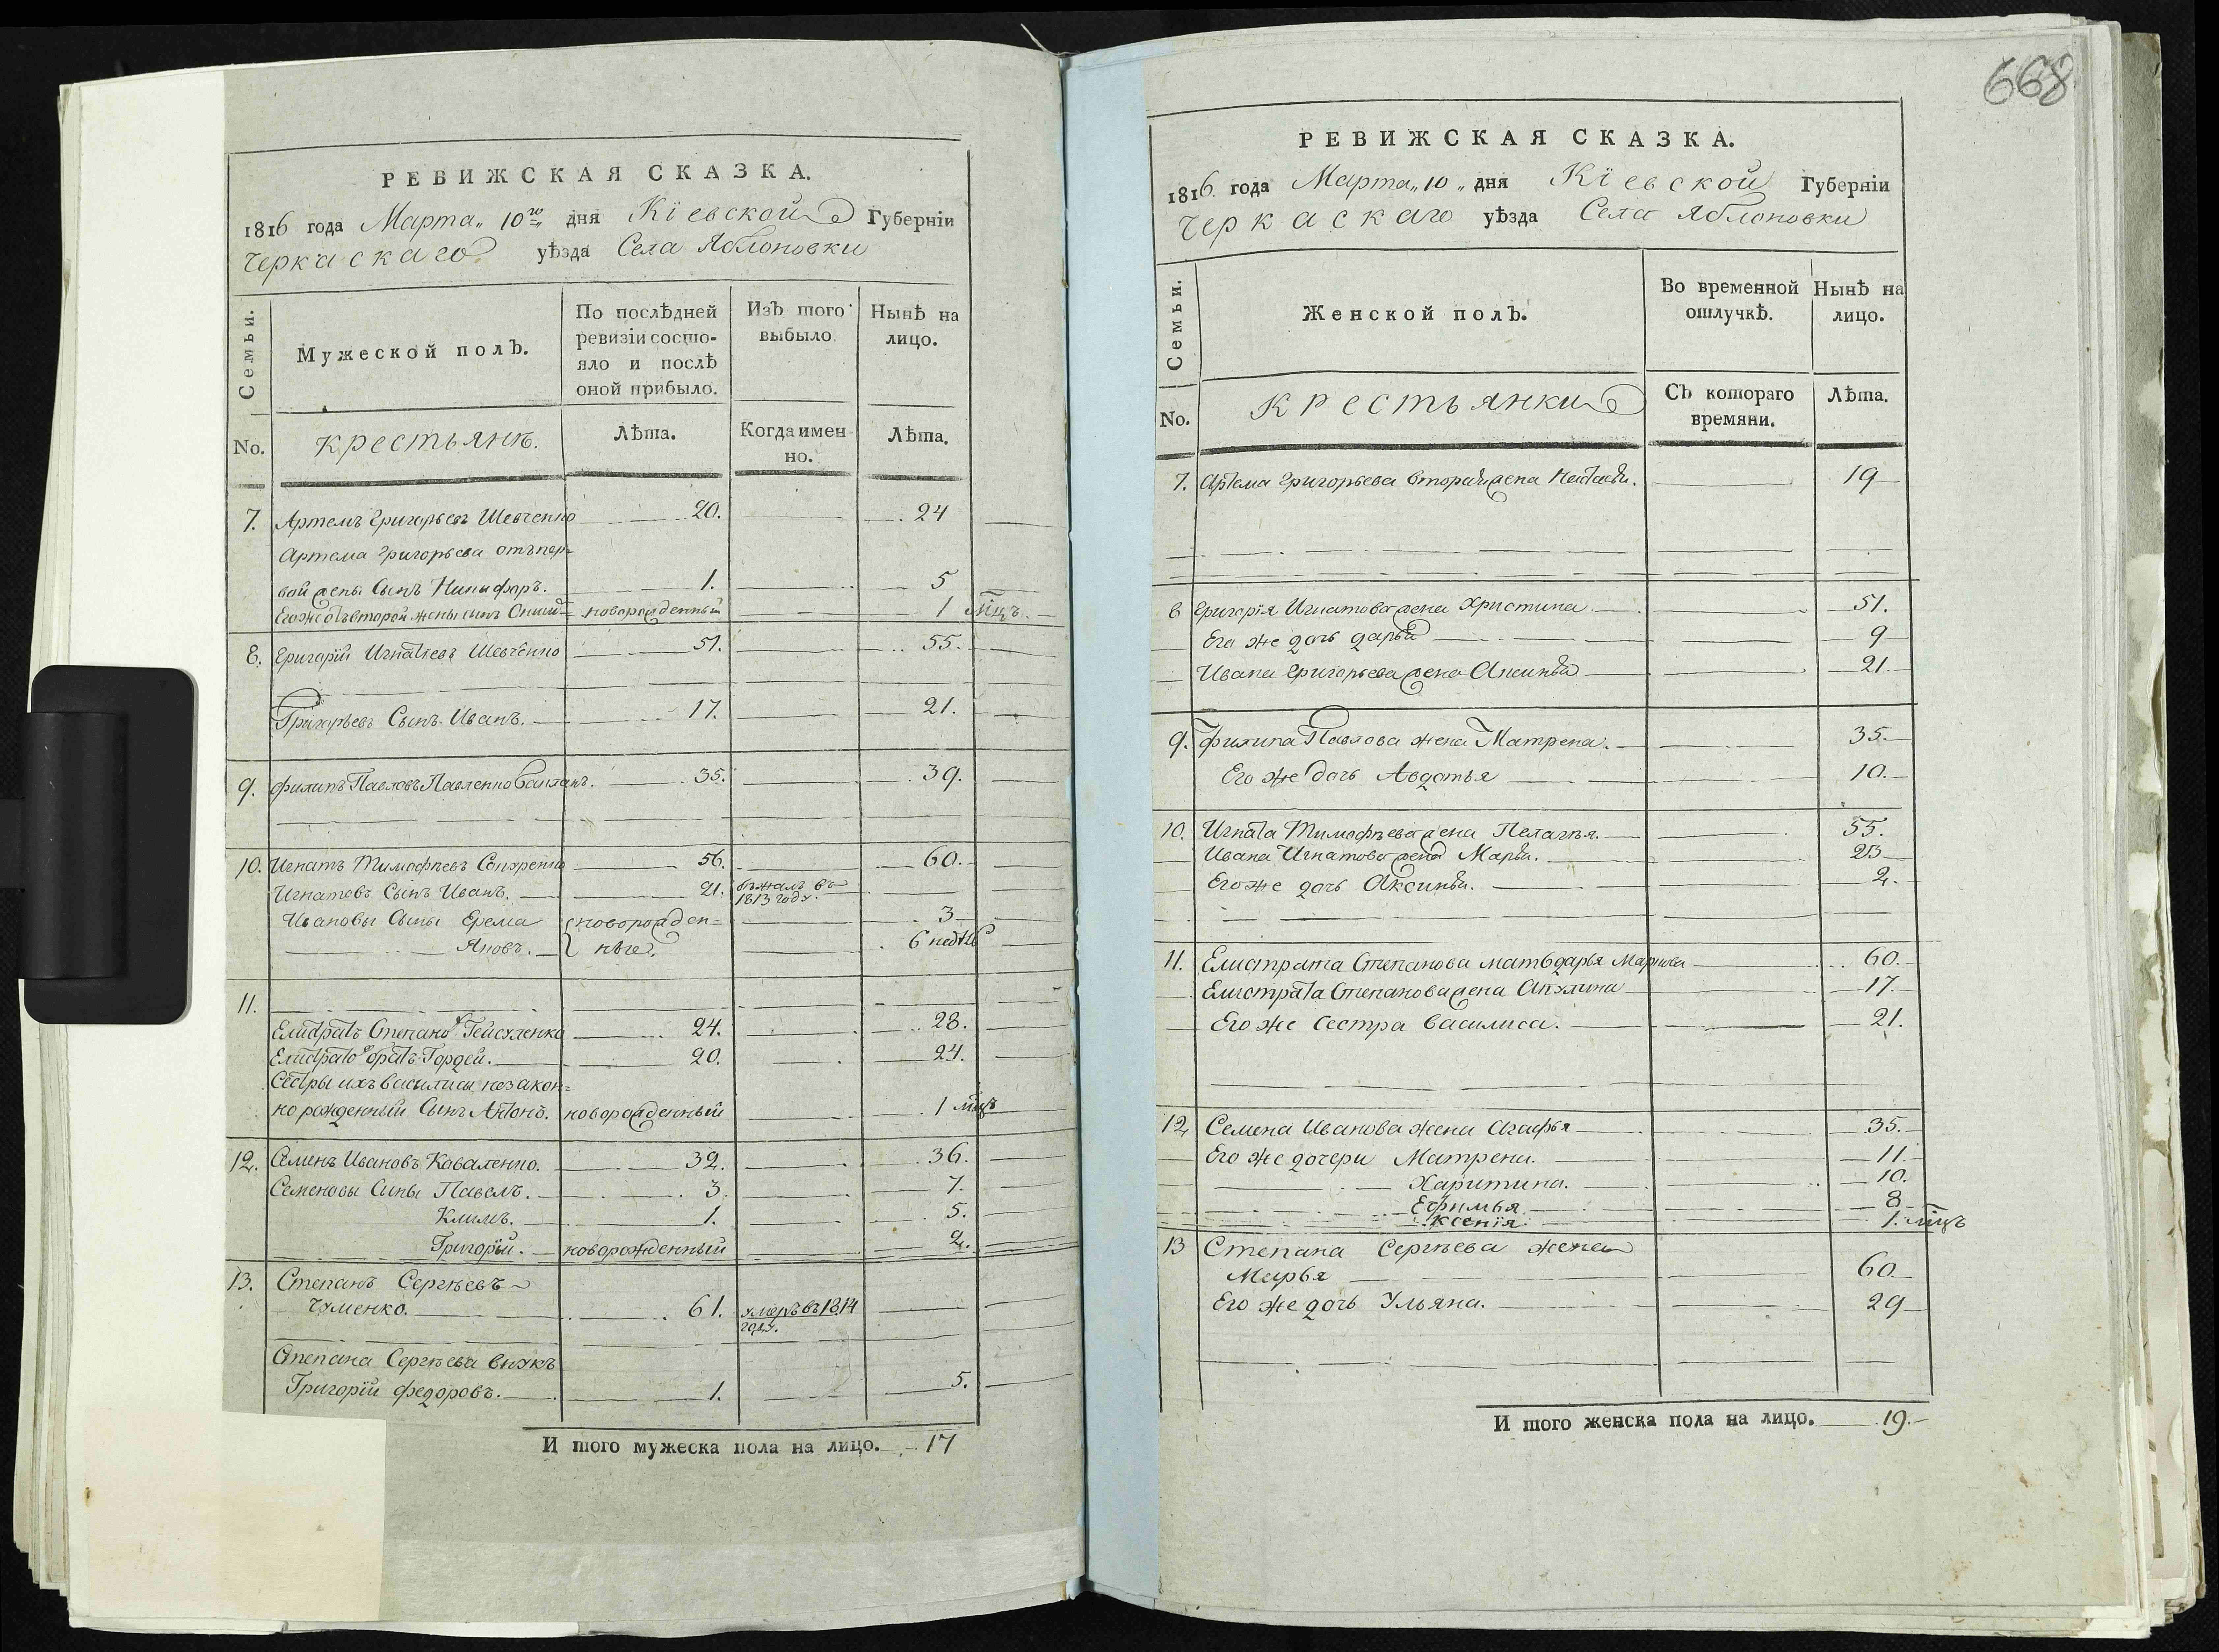 668
РЕВИЖСКАЯ СКАЗКА.
1816 года Марта„ 10го дня Кіевской Губерніи
Черкаскаго уѣзда Села Яблоновки
Семьи.
Мужеской полЪ.
По послѣдней
ревизіи состо-
яло и послѣ
оной прибыло.
ИзЪ того
выбыло
НынѢ на
лицо.
No.
крестьянъ.
Лѣта.
Когда имен-
но.
Лѣта.
7. Артемъ Григорьевъ Шевченко 20. 24
Артема Григорьева отъ пер-
вой жены Сынъ Никифоръ. 1. 5
Его же отъ второй жены сынъ новорожденный 1 мцъ.
8. Григорій Игнатьевъ Шевченко 51. 55.
Григорьевъ Сынъ Иванъ. 17. 21.
9. Филипъ Павловъ Павленко 35. 39.
10. Игнатъ Тимофѣевъ 56. 60.
Игнатовъ Сынъ Иванъ. 21. бѣжалъ въ
1813 году.
Ивановы Сыны Ерема новорожден= 3
Яковъ. ные. 6 недѣль
11.
Елистратъ Степановъ 24. 28.
Елистратовъ братъ Гордей. 20. 24.
Сестры ихъ Василисы незакон=
но рожденный Сынъ Антонъ. новорожденный 1 мцъ
12. Семенъ Ивановъ Коваленко. 32. 36.
Семеновы Сыны Павелъ. 3. 7.
Климъ. 1. 5.
Григорій. новорожденный 2.
13. Степанъ Сергѣевъ
Чуменко. 61. умеръ въ 1814
году.
Степана Сергѣева внукъ
Григорій Федоровъ. 1. 5.
И того мужеска пола на лицо. 17
РЕВИЖСКАЯ СКАЗКА.
1816. года Марта„ 10 „ дня Кіевской Губерніи
Черкаскаго уѣзда Села Яблоновки
Семьи.
Женской полЪ.
Во временной
отлучкѣ.
НынѢ на
лицо.
No.
Крестьянки
СЪ котораго
времяни.
Лѣта.
7. Артема Григорьева вторая жена Настасья. 19
8 Григорія Игнатова жена Христина 51.
Его же дочь Дарья 9
Ивана Григорьева жена Аксинья 21.
9. Филипа Павлова жена Матрена. 35.
Его же дочь Авдотья 10.
10. Игната Тимофѣева жена Пелагья. 55.
Ивана Игнатова жена Марья. 23
Его же дочь Аксинья. 2.
11. Елистрата Степанова мать Дарья Маркова 60.
Елистрата Степанова жена Акулина 17.
Его же сестра Василиса. 21.
12. Семена Иванова жена Агафья 35.
Его же дочери Матрена. 11.
Харитина. 10.
Ефимья 8
Ксенія. 1. мцъ
13 Степана Сергѣева жена
Марья 60
Его же дочь Ульяна. 29
И того женска пола на лицо. 19.